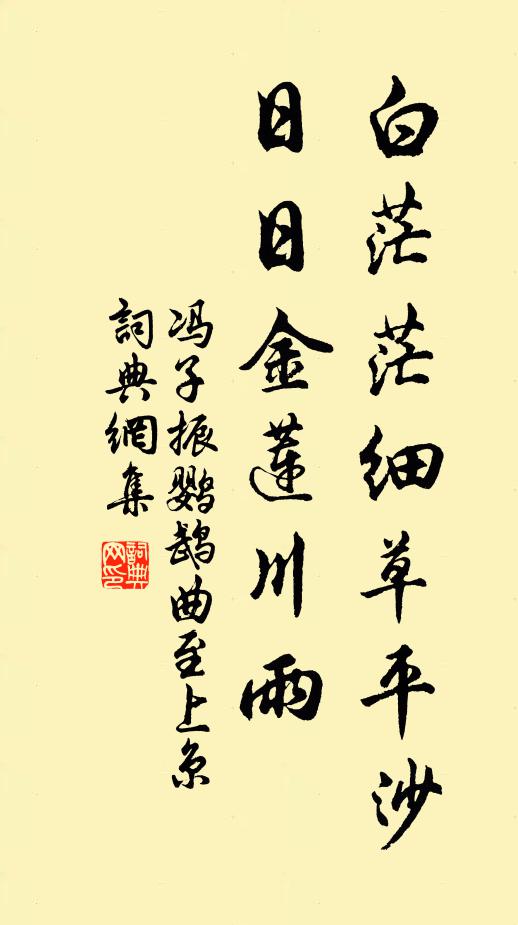 白茫茫细草平沙
日日金莲川雨
冯子振鹦鹉曲至上京
詞典網集
詞典网印